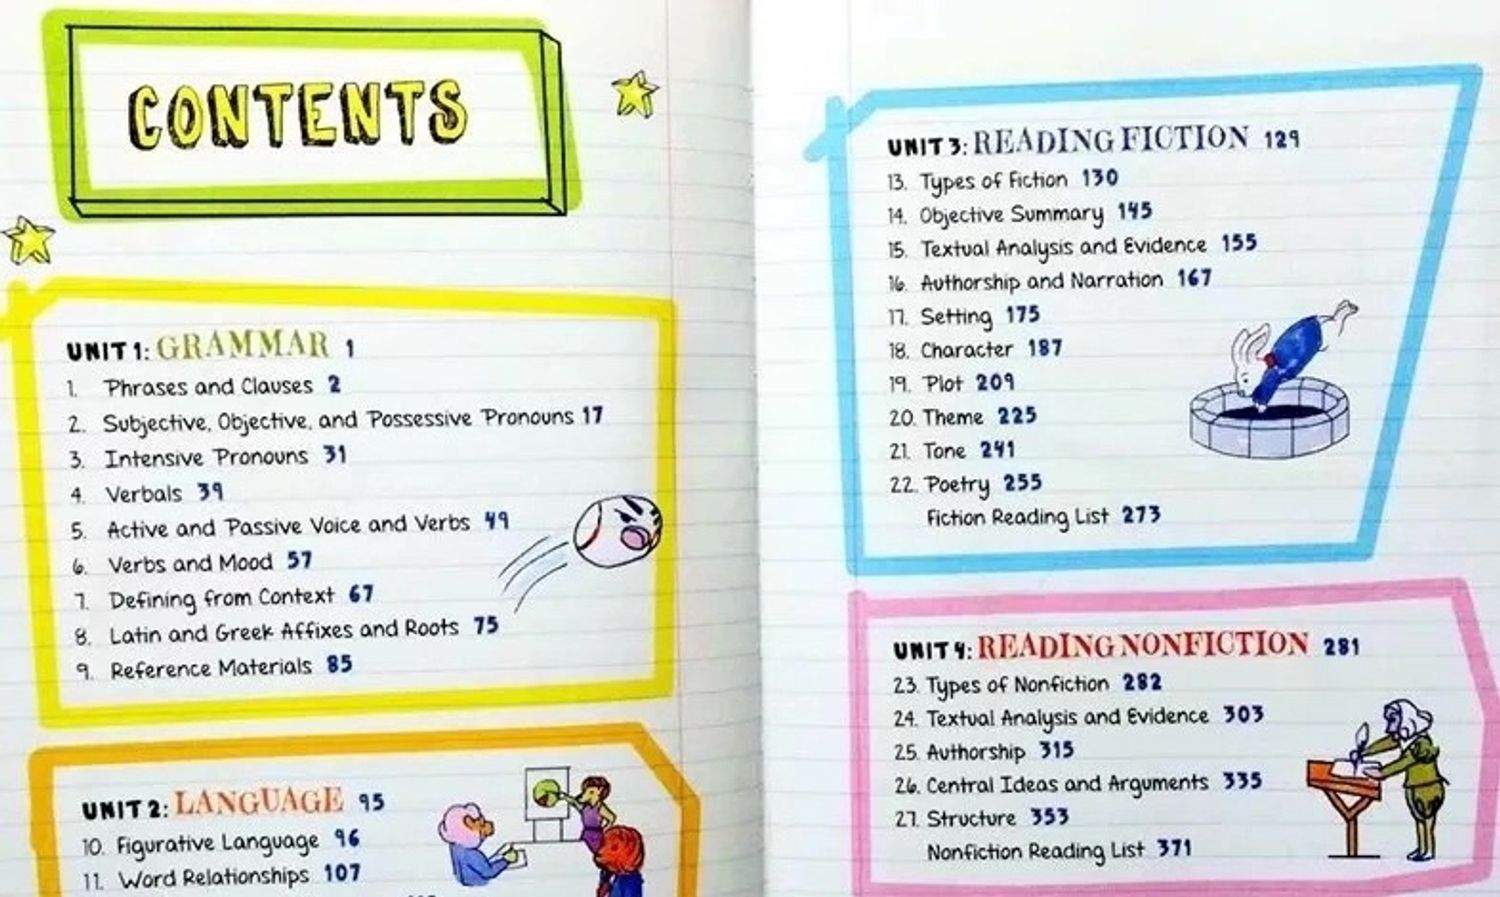 CONTENTS
UNIT 1: GRAMMAR 1
1. Phrases and Clauses 2
2. Subjective, Objective, and Possessive Pronouns 17
3. Intensive Pronouns 31
4. Verbals 39
5. Active and Passive Voice and Verbs 49
6. Verbs and Mood 57
7. Defining from Context 67
8. Latin and Greek Affixes and Roots 75
9. Reference Materials 85
UNIT 2: LANGUAGE 95
10. Figurative Language 96
11. Word Relationships 107
UNIT 3: READING FICTION 129
13. Types of Fiction 130
14. Objective Summary 145
15. Textual Analysis and Evidence 155
16. Authorship and Narration 167
17. Setting 175
18. Character 187
19. Plot 209
20. Theme 225
21. Tone 241
22. Poetry 255
Fiction Reading List 273
UNIT 4: READING NONFICTION 281
23. Types of Nonfiction 282
24. Textual Analysis and Evidence 303
25. Authorship 315
26. Central Ideas and Arguments 335
27. Structure 353
Nonfiction Reading List 371